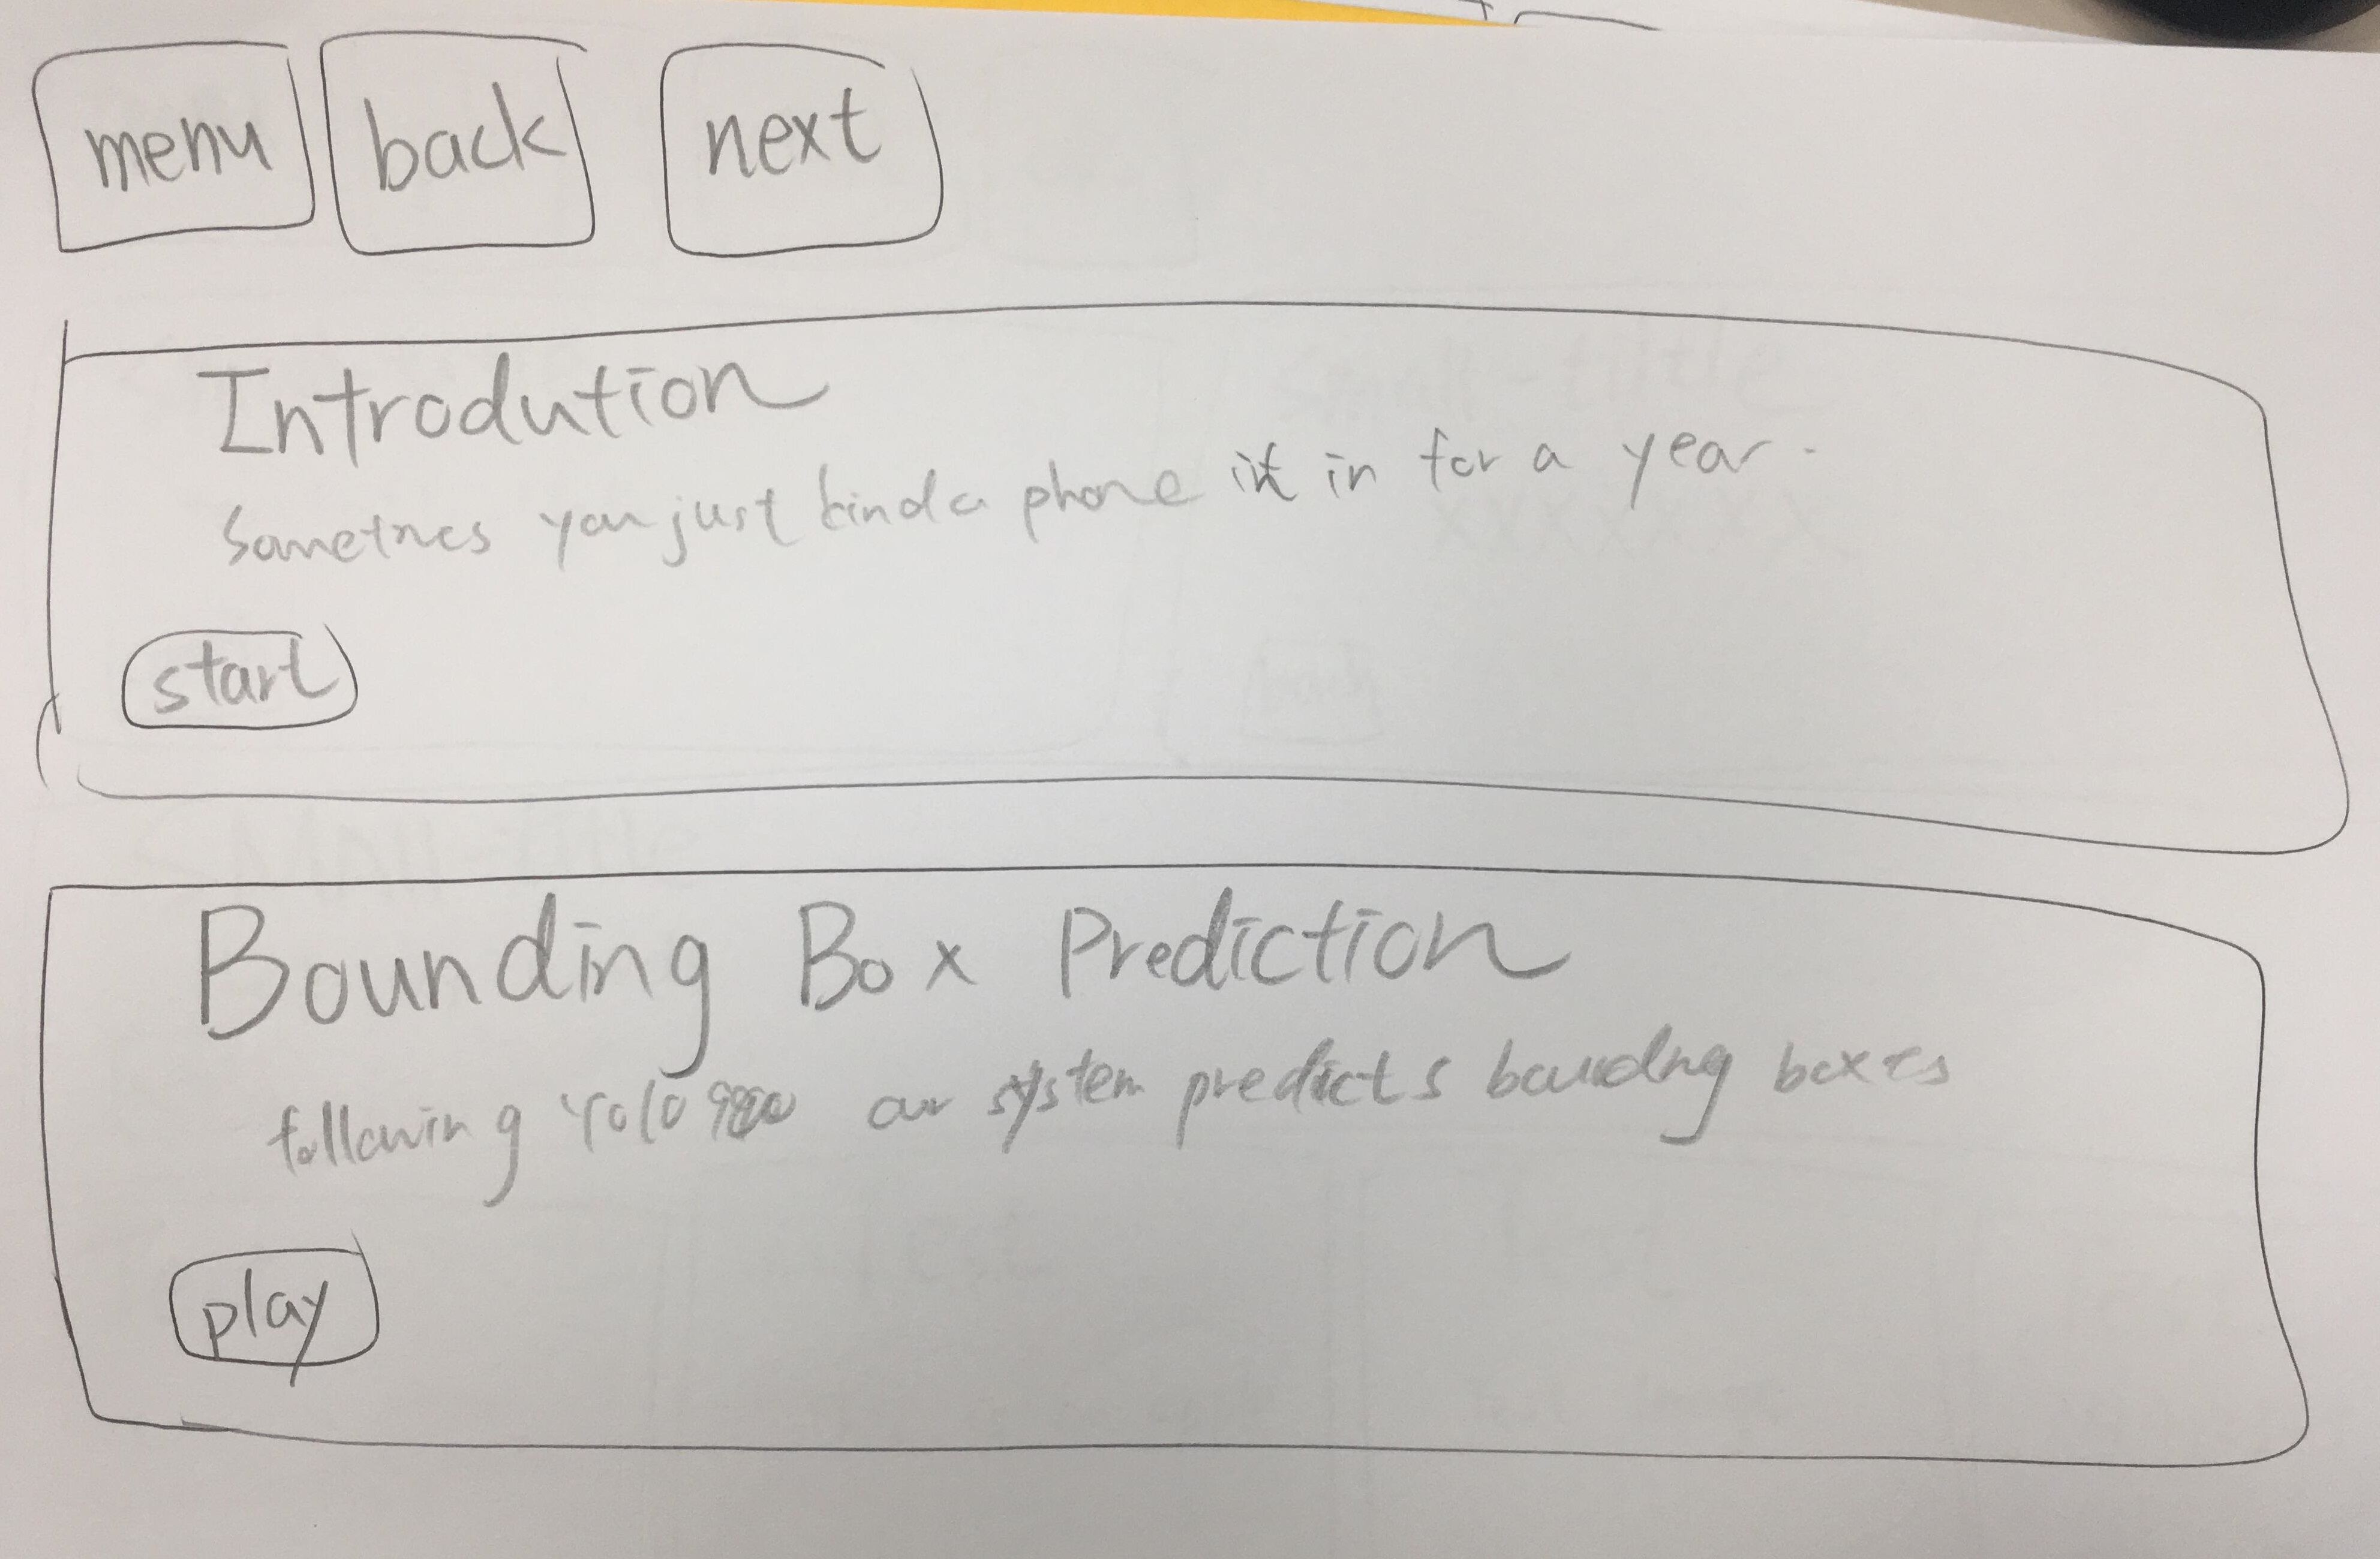 menu back next
Introdution
Sometimes you just kinda phone it in for a year.
start
Bounding Box Prediction
following YOLO 9000 our system predicts bounding boxes
play